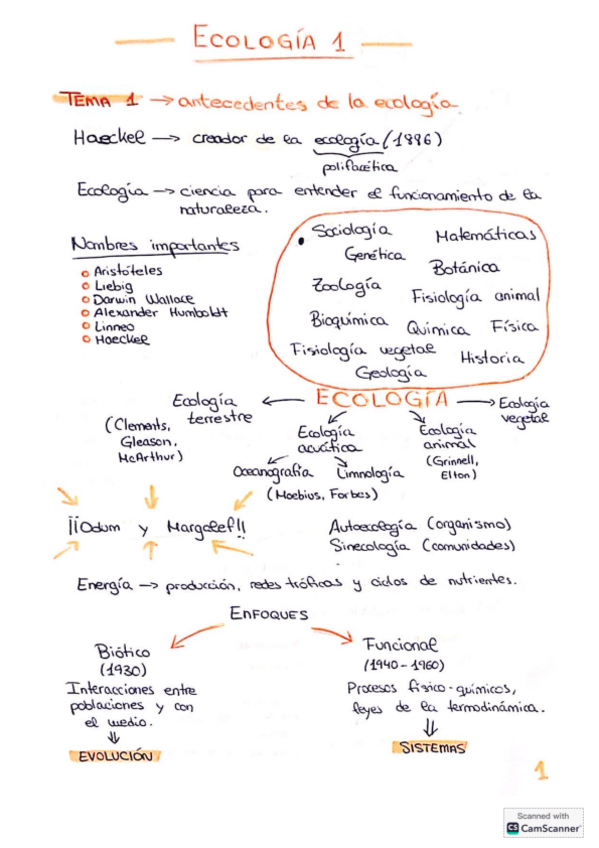 ECOLOGÍA 1
TEMA 1 → antecedentes de la ecología
Haeckel → creador de la ecología (1886)
polifacética
Ecología → ciencia para entender el funcionamiento de la
naturaleza.
Nombres importantes
Aristóteles
Liebig
Darwin Wallace
Alexander Humboldt
Linneo
Haeckel
Sociología
Matemáticas
Genética
Botánica
Zoología
Fisiología animal
Bioquímica
Química
Física
Fisiología vegetal
Historia
Geología
ECOLOGÍA
Ecología
terrestre
(Clements,
Gleason,
McArthur)
Ecología
acuática
Oceanografía
Limnología
(Moebius, Forbes)
Ecología
animal
(Grinnell,
Elton)
Ecología
vegetal
¡¡Odum y Margalef!!
Autoecología (organismo)
Sinecología (comunidades)
Energía → producción, redes tróficas y ciclos de nutrientes.
ENFOQUES
Biótico
(1930)
Interacciones entre
poblaciones y con
el medio.
⇓
EVOLUCIÓN
Funcional
(1940-1960)
Procesos físico-químicos,
leyes de la termodinámica.
⇓
SISTEMAS
1
Scanned with
CS CamScanner